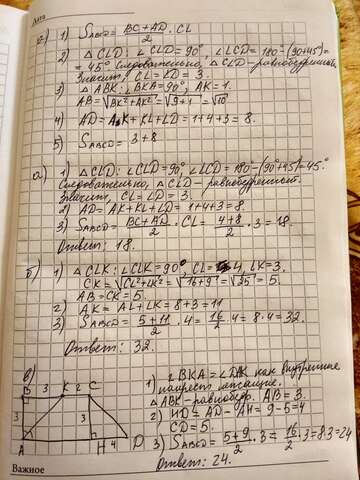 Дата
а) 1) S_ABCD = (BC+AD)/2 · CL
2) △CLD: ∠CLD = 90°, ∠LCD = 180°-(90+45)=
= 45°. Следовательно, △CLD - равнобедренный.
Значит, CL = LD = 3.
3) △ABK: ∠BKA = 90°, AK = 1.
AB = √BK²+AK² = √9+1 = √10
4) AD = AK + KL + LD = 1+4+3 = 8.
5) S_ABCD = 3+8
а) 1) △CLD: ∠CLD = 90°, ∠LCD = 180-(90+45)=45°
Следовательно, △CLD - равнобедренный.
Значит, CL = LD = 3.
2) AD = AK+KL+LD = 1+4+3 = 8.
3) S_ABCD = (BC+AD)/2 · CL = (4+8)/2 · 3 = 18.
Ответ: 18.
б) 1) △CLK: ∠CLK = 90°, CL = 4, LK = 3.
CK = √CL²+LK² = √16+9 = √25 = 5.
AB = CK = 5.
2) AK = AL+LK = 8+3 = 11
3) S_ABCD = (5+11)/2 · 4 = 16/2 · 4 = 8·4 = 32.
Ответ: 32.
в)
3 K 2 C
3 3
A H 4 D
1) ∠BKA = ∠DAK как внутренние
накрест лежащие.
△ABK - равнобедр. AB = 3.
2) HD = AD - AH = 9-5 = 4
CD = 5.
3) S_ABCD = (5+9)/2 · 3 = 16/2 · 3 = 8·3 = 24
Ответ: 24.
Важное